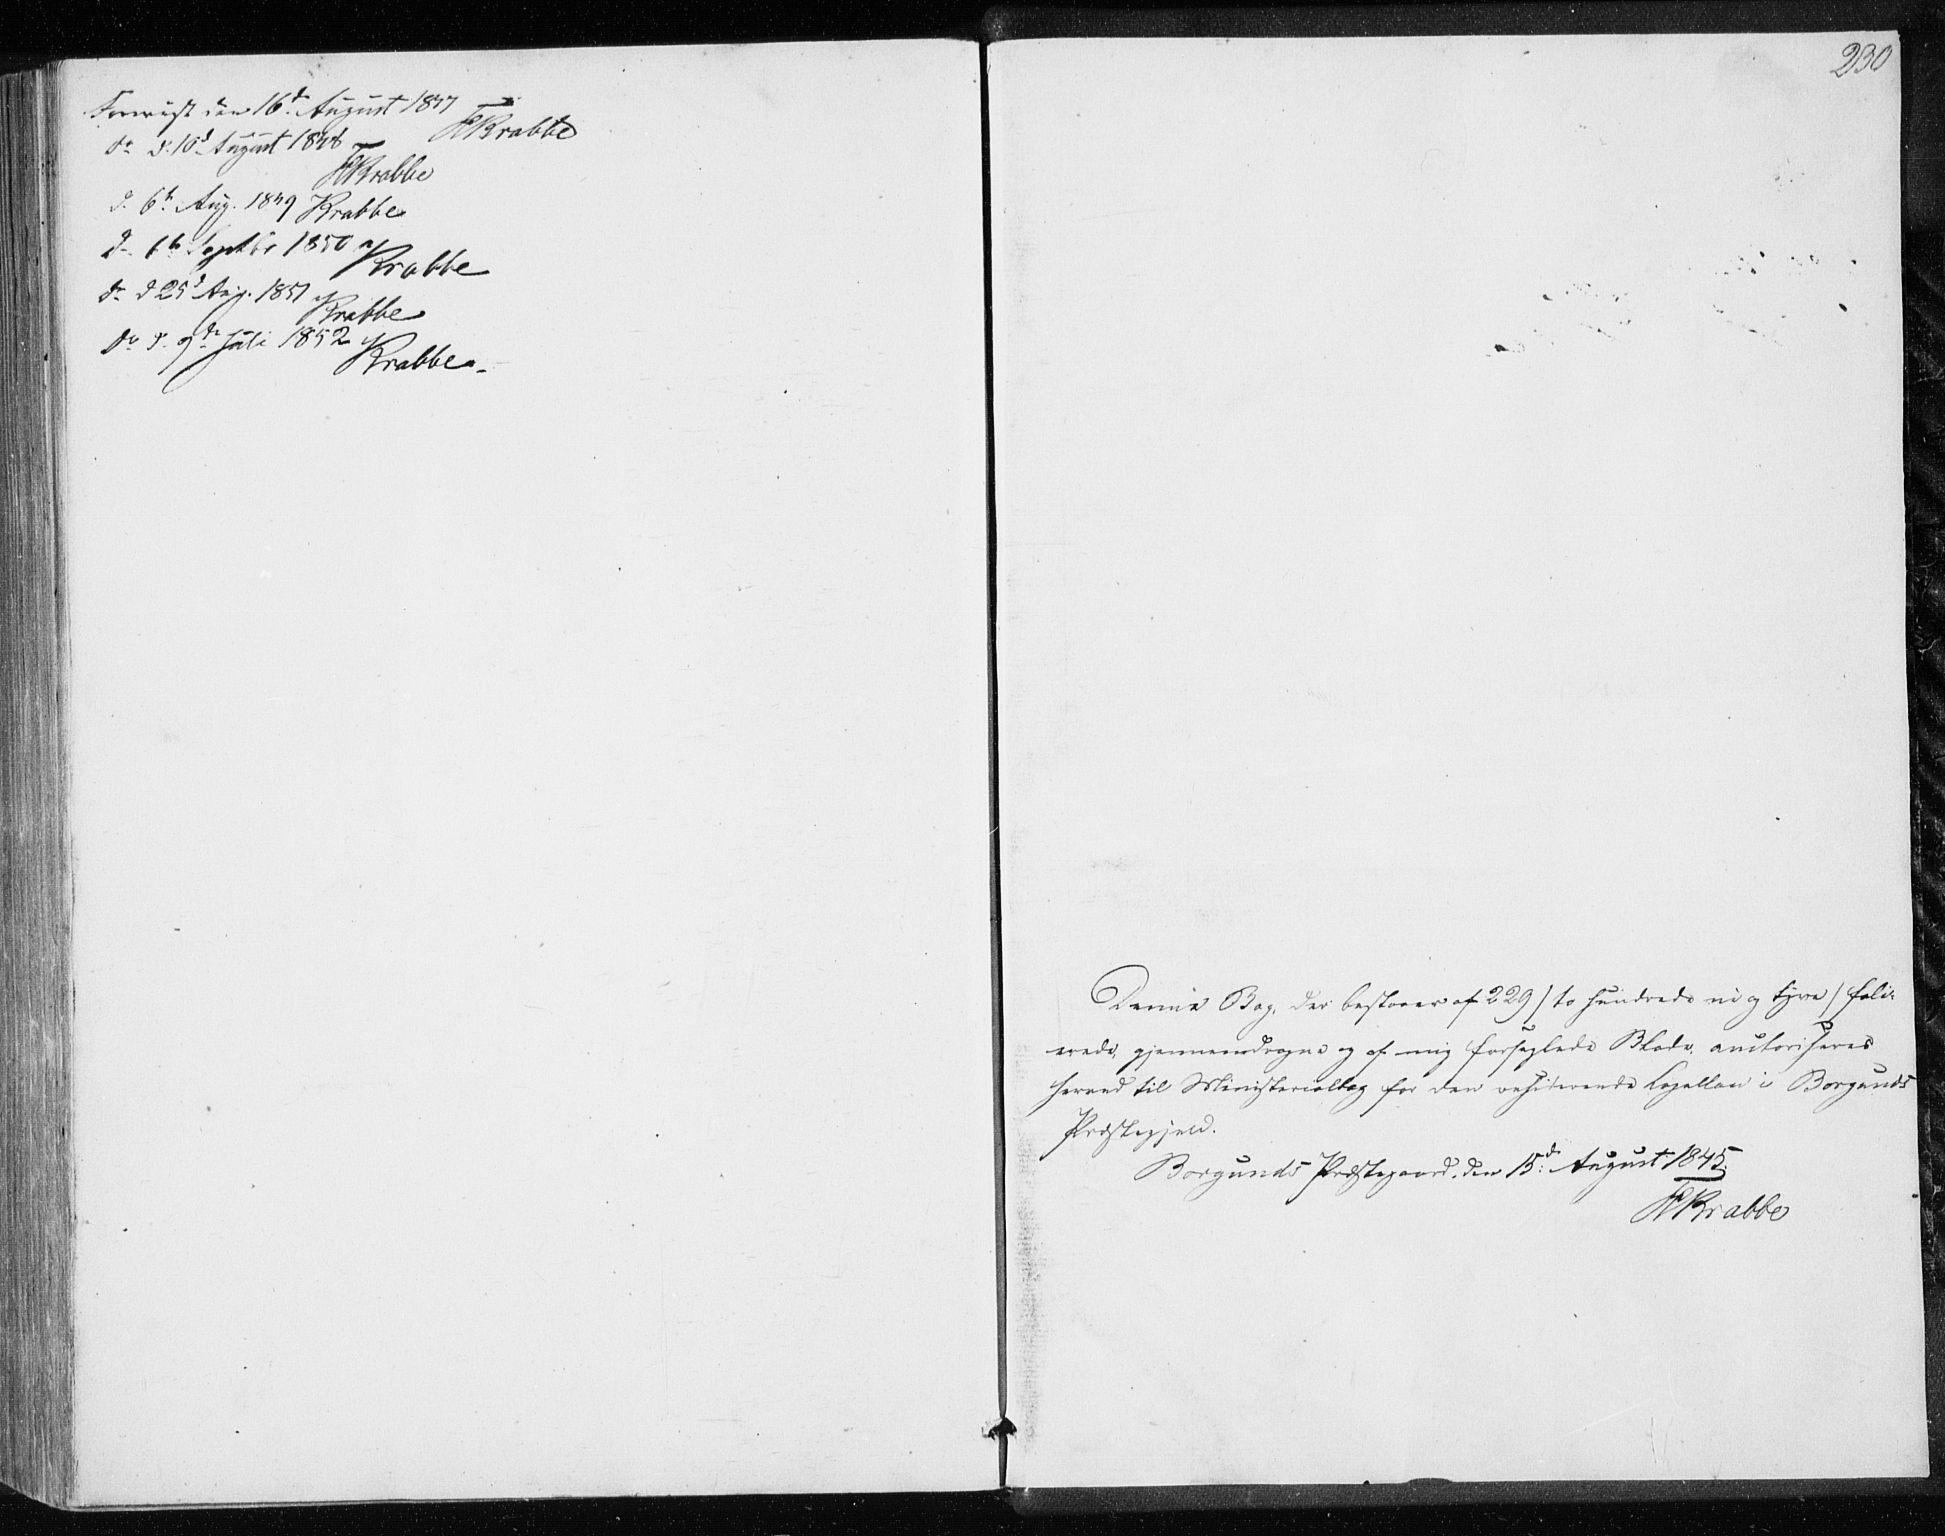 Foreviist den 16d August 1847
HKrabbe
do d. 16d August 1848
HKrabbe
d. 6te Aug. 1849 Krabbe
do 6te Septbr 1850 af
Krabbe
do d 25d Aug. 1851 af
Krabbe
do d. 9de Juli 1852 af
Krabbe.
230
Denne Bog, der bestaaer af 229 / to hundrede ni og tyve / foli-
erede, gjennemdragne og af mig forseglede Blade, auctoriseres
herved til Ministerialbog for den residerende Capellan i Borgunds
Præstegjeld.
Borgunds Præstegaard, den 15d: August 1845.
HKrabbe